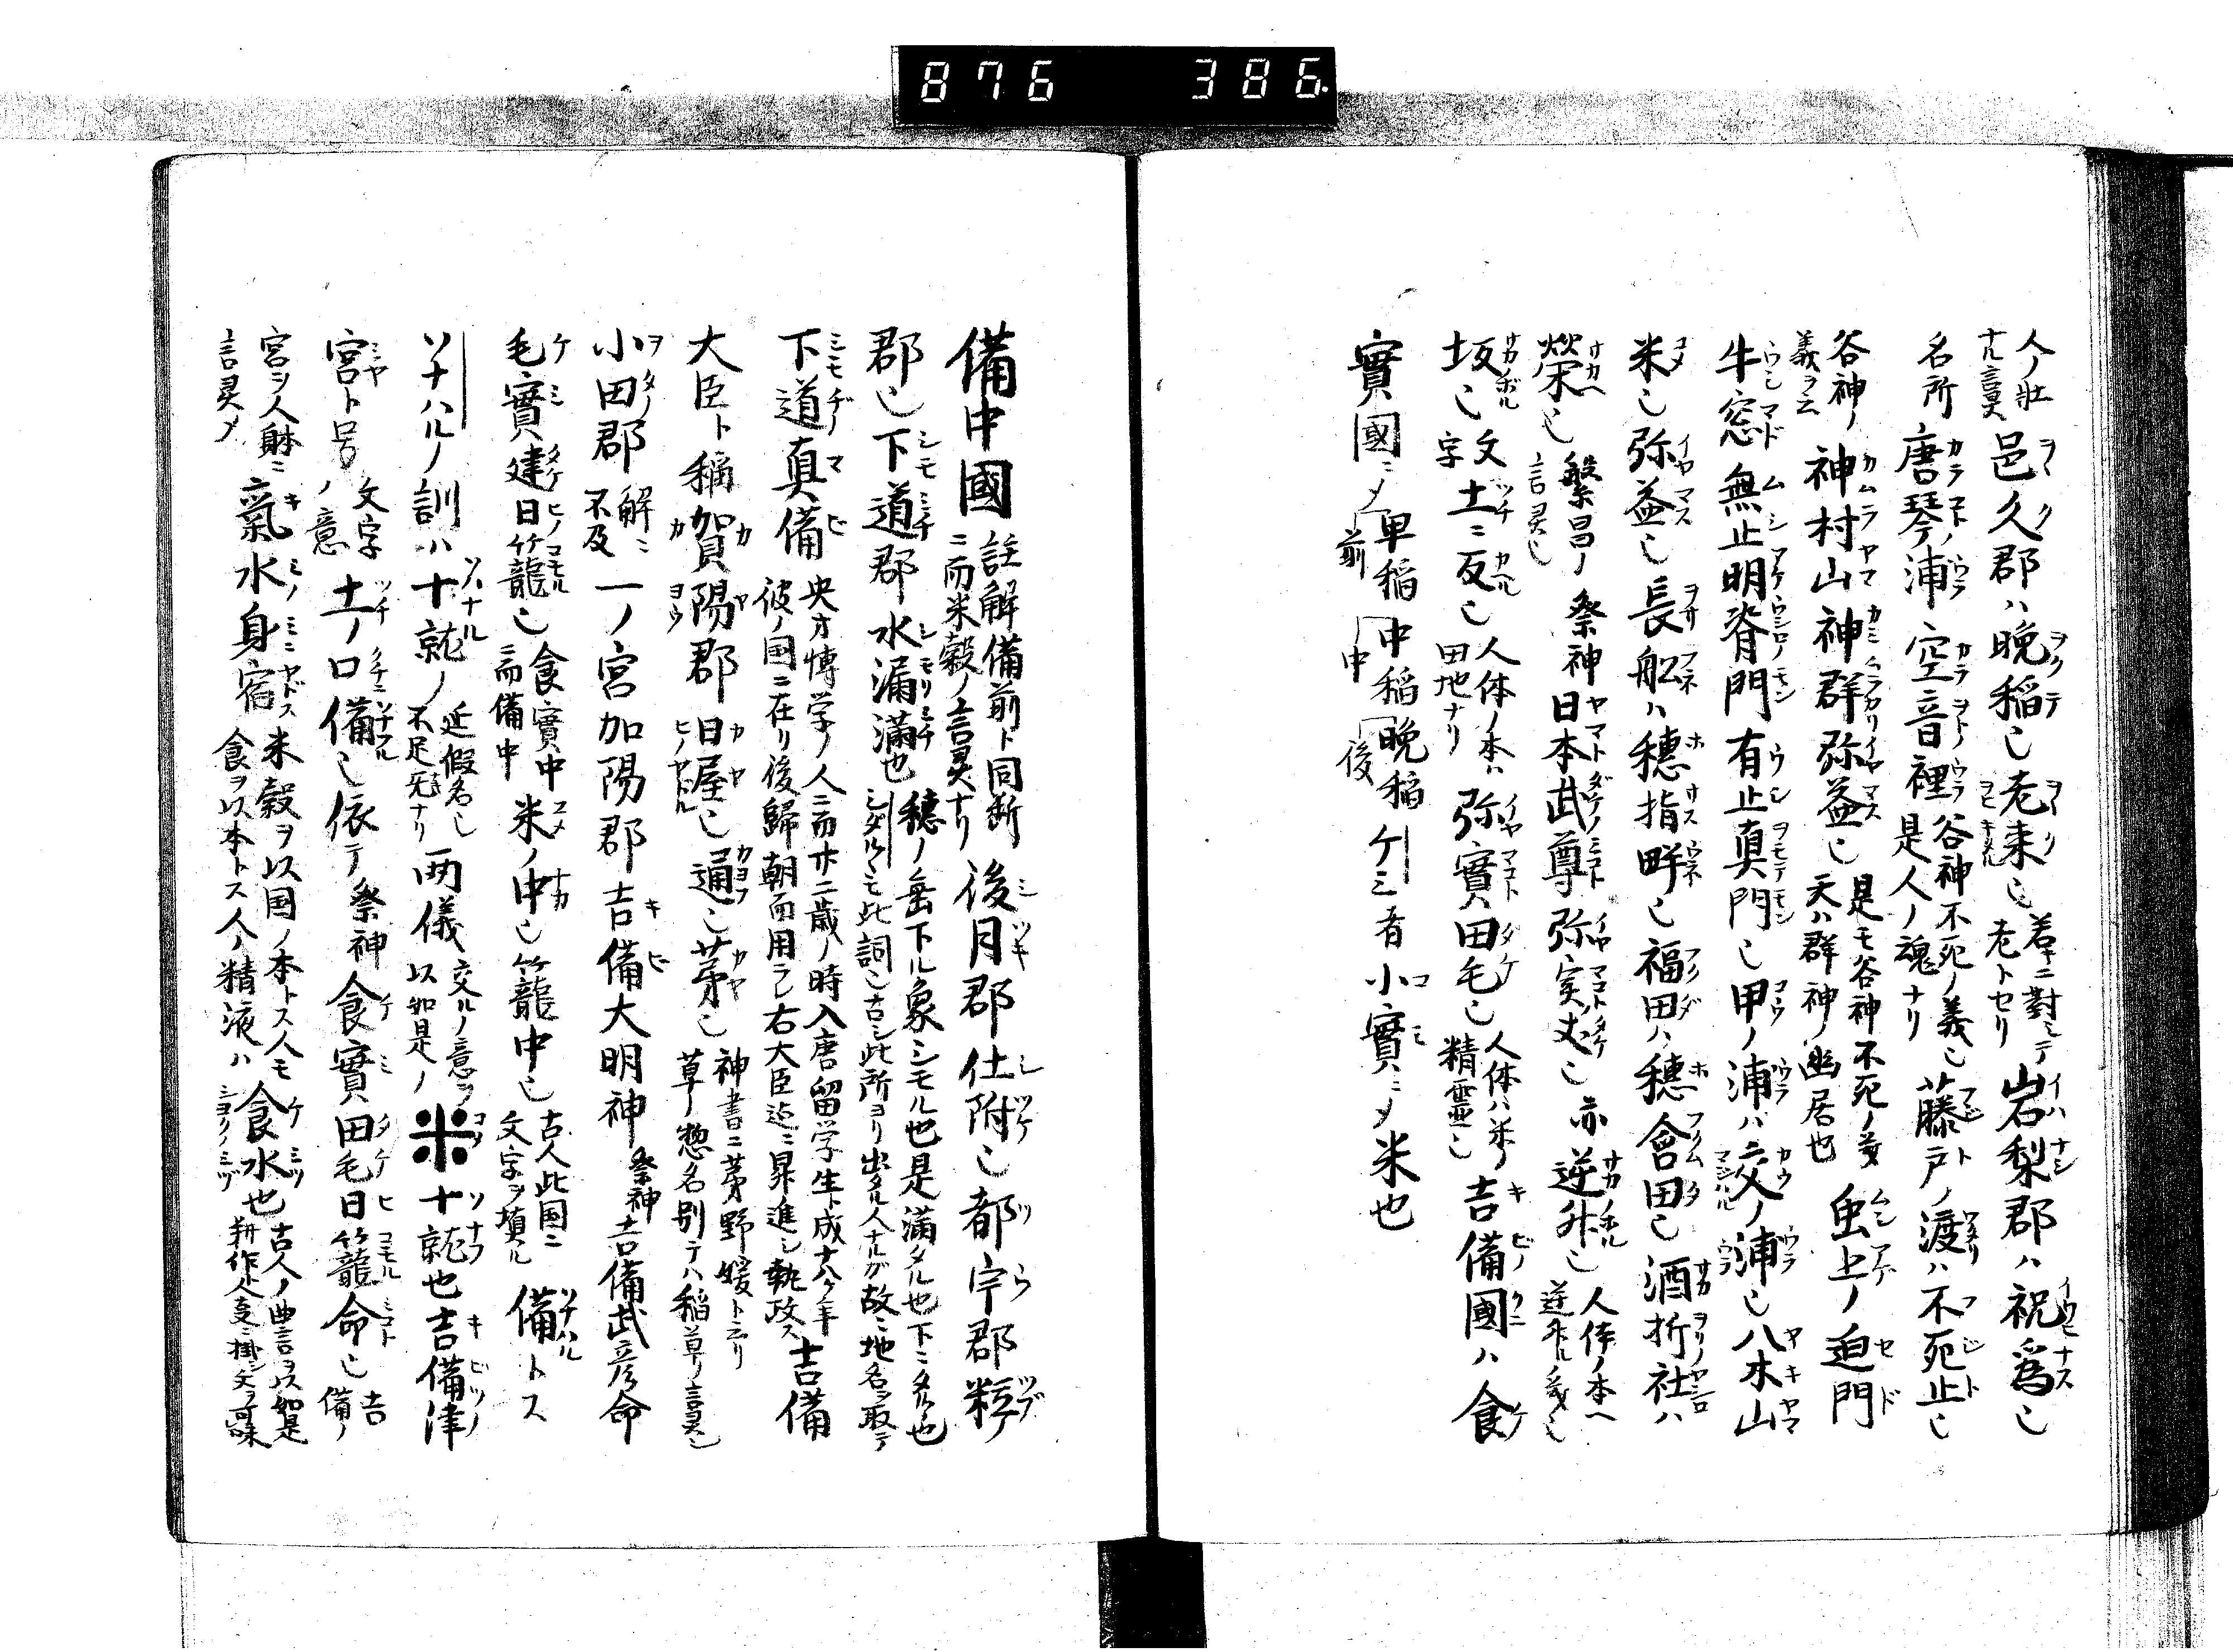 876 386
人ノ壯ナル言灵 邑久郡ハ晩稲也老来也 若キニ對シテ老トセリ 岩梨郡ハ祝為也
名所 唐琴浦 空音裡 谷神不死ノ義也是人ノ魂ナリ 藤戸ノ渡ハ不死止也
谷神ノ義ヲ云 神村山神群弥益也 是モ谷神不死ノ義天ハ群神ノ幽居也 虫上ノ迫門
牛窓 無止明脊門 有止真門也 甲ノ浦ハ交ノ浦也 八木山
米也弥益也 長船ハ穗指畔也 福田ハ穗會田也 酒折社ハ
榮也 繁昌ノ言灵也 祭神日本武尊 弥実丈也 亦逆升也 人体ノ本ヘ逆升ル義也
坂也 文字 土ニ反也 人体ノ本ハ田地ナリ 弥實田毛也 人体ハ米ノ精靈也 吉備國ハ食
實國ニメ 早稲前 中稲中 晩稲後 ケミ者小實ニメ米也
備中國 註解備前ト同断ニ而米穀ノ言灵ナリ 後月郡仕附也 都宇郡粰
郡也 下道郡水漏滿也 穗ノ垂下ル象シモル也是滿タル也下ニタル也シダルヽモ此詞也古シ此所ヨリ出タル人ナルガ故ニ地名ヲ取テ
下道真備 央才博学ノ人ニ而廾二歳ノ時入唐留学生ト成十八ケ年彼ノ国ニ在リ後歸朝而用ラレ右大臣迄ニ昇進シ執政ス 吉備
大臣ト稱 賀陽郡 日屋也 通也 茅也 神書ニ茅野媛ト云リ草ノ惣名別テハ稲草ノ言灵也
小田郡 解ニ不及 一ノ宮加陽郡吉備大明神 祭神 吉備武彦命
毛實建日竹籠也 食實中ニ而備中 米ノ中也竹籠中也 古人此国ニ文字ヲ填ル 備トス
ソナハルノ訓ハ十就ノ 延假名也不足死ナリ 两儀 交ルノ意ヲ以如是ノ 米 十就也吉備津
宮ト号 文字ノ意 土ノ口備也依テ祭神食實田毛日竹籠命也 吉備ノ
宮ヲ人躰ニ言灵メ 氣水身宿 米穀ヲ以国ノ本トス人モ食ヲ以本トス人ノ精液ハ 食水也 古人ノ曲言ヲ以如是耕作人支ニ掛シ文ヲ可味